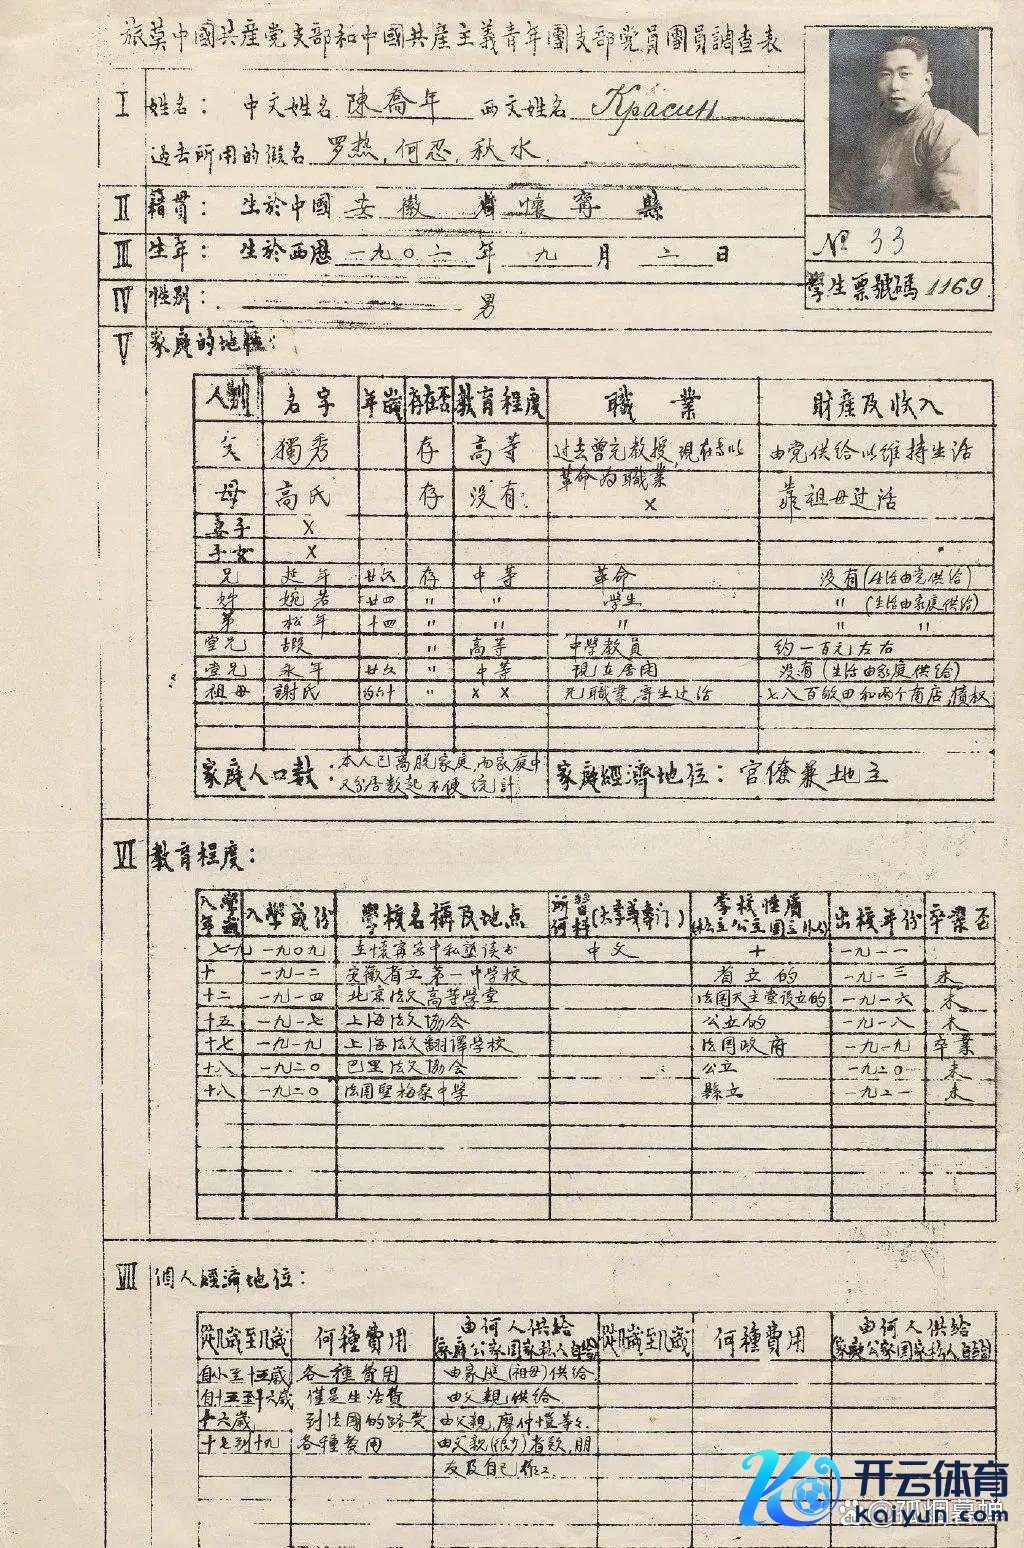 旅莫中國共產党支部和中國共產主義青年團支部党員團員調查表
I 姓名： 中文姓名 陳喬年 西文姓名 Красин
過去所用的假名 罗热，何忍，秋水
II 籍貫： 生於中國 安徽 省 懷寧 縣
III 生年： 生於西歷 一九〇二 年 九 月 二 日
IV 性别： 男
№ 33
學生票號碼 1169
V 家庭的地位：
人别 名字 年歲 存在否 教育程度 職業 財產及收入
父 獨秀 存 高等 过去曾充教授，現在专以革命为職業 由党供给以維持生活
母 高氏 存 没有 × 靠祖母过活
妻子 ×
子女 ×
兄 延年 廿六 存 中等 革命 没有(生活由党供给)
姊 婉若 廿四 〃 〃 学生 〃 (生活由家庭供给)
弟 松年 十四 〃 〃 〃 〃 〃
堂兄 遐 〃 高等 中學教員 约一百元左右
堂兄 永年 廿六 〃 中等 現在居闲 没有(生活由家庭供给)
祖母 謝氏 〃 × × 无職業，寄生过活 七八百畝田和两个商店，債权
家庭人口數： 本人已离脱家庭，而家庭中又分居数起不便统計 家庭經濟地位： 官僚兼地主
VI 教育程度：
入學年歲 入學歲份 學校名稱及地点 所習何科(大学義專门) 学校性質(私立公立國立外公) 出校年份 卒業否
七—九 一九〇九 在懷寧家中私塾读书 中文 + 一九一一
十一 一九一二 安徽省立第一中学校 省立的 一九一三 未
十二 一九一四 北京法文高等學堂 法国天主堂設立的 一九一六 未
十五 一九一七 上海法文協会 公立的 一九一八 未
十七 一九一九 上海法文翻譯学校 法国政府 一九一九 卒業
十八 一九二〇 巴里法文協会 公立 一九二〇 未
十八 一九二〇 法国聖梅桑中学 縣立 一九二一 未
VII 個人經濟地位：
從几歲至几歲 何種費用 由何人供給(家庭公家国家私人自給) 從几歲至几歲 何種費用 由何人供給(家庭公家国家私人自給)
自小至十五歲 各種費用 由家庭(祖母)供给
自十五至十六歲 僅是生活費 由父親供给
十六歲 到法國的路费 由父親，廖仲愷等
十七到十九 各種費用 由父親(很少)者欵，朋友及自己作工
开云体育
kaiyun.com